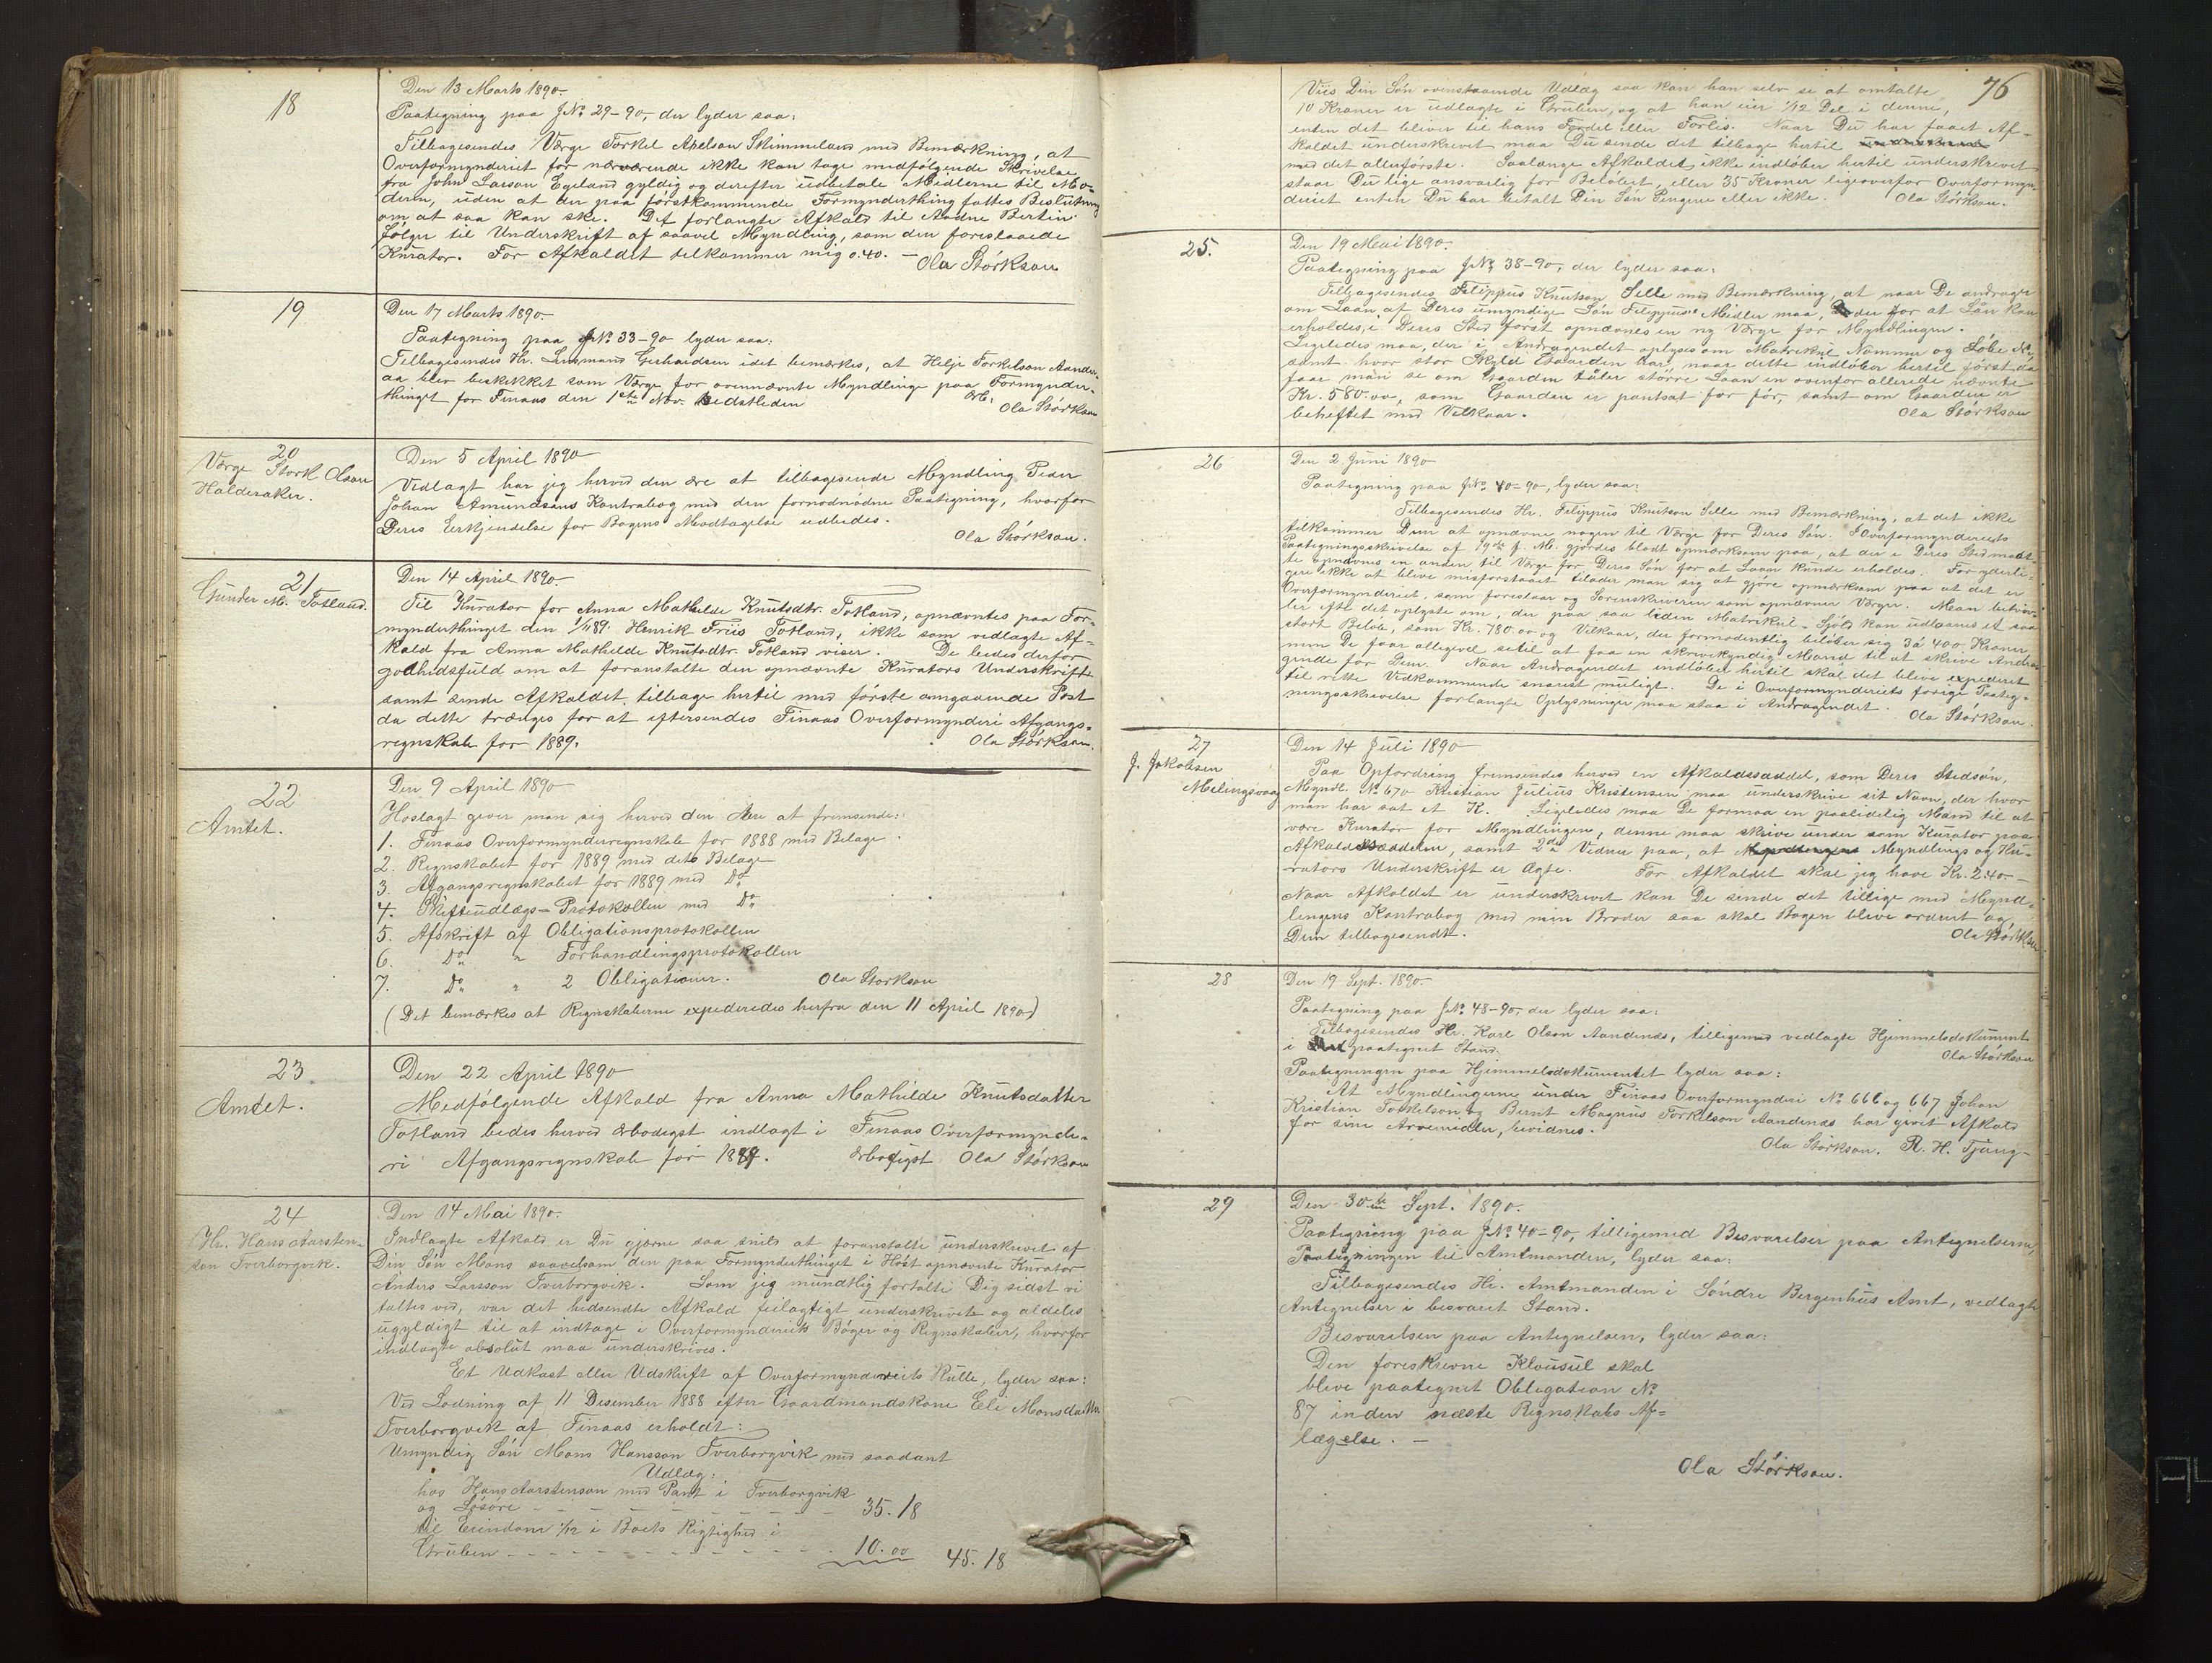 18
Den 13 Marts 1890.
Paategning paa J.No 29-90, der lyder saa:
Tilbagesendes Værge Torkel Axelson Skimmeland med Bemærkning, at
Overformynderiet for nærværende ikke kan tage medfølgende Skrivelse
fra John Larson Egeland gyldig og derefter udbetale Midlerne til Mo-
deren, uden at der paa førstkommende Formynderthing fattes Beslutning
om at saa kan ske. Det forlangte Afkald til Aadne Bertin
følger til Underskrift af saavel Myndling, som den foreslaaede
Kurator. For Afkaldet tilkommer mig 0.40. – Ola Størkson
19
Den 17 Marts 1890.
Paategning paa J.No 33-90 lyder saa:
Tilbagesendes Hr. Lensmand Gerhardsen idet bemærkes, at Helje Torkelson
aa blev beskikket som Værge for ovennævnte Myndlinge paa Formynder-
thinget for Finaas den 1ste Nov. sidstleden
Ola Størkson
20
Værge Størk Olson
Halderaker.
Den 5 April 1890
Vedlagt har jeg herved den ære at tilbagesende Myndling Peder
Johan Amundsens Kontrabog med den fornødne Paategning, hvorfor
Deres Erkjendelse for Bogens Modtagelse udbedes.
Ola Størkson.
21
Gunder M. Totland.
Den 14 April 1890
Til Kurator for Anna Mathilde Knutsdtr. Totland, opnævntes paa For-
mynderthinget den 1/11 89. Henrik Friis Totland, ikke som vedlagte Af-
kald fra Anna Mathilde Knutsdtr. Totland viser. De bedes derfor
godhedsfuld om at foranstalte den opnævnte Kurators Underskrift
samt sende Afkaldet tilbage hertil med første omgaaende Post
da dette trænges for at eftersendes Finaas Overformynderi Afgangs-
regnskab for 1889. Ola Størkson.
22
Amtet.
Den 9 April 1890
Hoslagt giver man sig herved den Ære at fremsende:
1. Finaas Overformynderregnskab for 1888 med Belage.
2. Regnskabet for 1889 med dets Belage
3. Afgangsregnskabet for 1889 med Do
4. Skifteudlægs-Protokollen med Do
5. Afskrift af Obligationsprotokollen
6. Do " Forhandlingsprotokollen
7. Do " 2 Obligationer. Ola Størkson
(Det bemærkes at Regnskaberne expederedes herfra den 11 April 1890)
23
Amtet.
Den 22 April 1890
Medfølgende Afkald fra Anna Mathilde Knutsdatter
Totland bedes herved ærbødigst indlagt i Finaas Overformynde-
ri Afgangsregnskab for 1889. Ærbødigst Ola Størkson
24
Hr. Hans Aarsten-
son Tverborgvik.
Den 14 Mai 1890.
Indlagte Afkald er Du gjerne saa snild at foranstalte underskrevet af
Din Søn Mons saavelsom den paa Formynderthinget i Høst opnævnte Kurator
Anders Larsson Tverborgvik. Som jeg mundtlig fortalte Dig sidst vi
taltes ved, var det hidsendte Afkald feilagtigt underskrivet og aldeles
ugyldigt til at indtage i Overformynderiets Bøger og Regnskaber, hvorfor
indlagte absolut maa underskrives.
Et Udkast eller Udskrift af Overformynderiets Rulle, lyder saa:
Ved Lodning af 11 Desember 1888 efter Gaardmandskone Eli Monsdatter
Tverborgvik af Finaas erholdt:
Umyndig Søn Mons Hansson Tverborgvik med saadant
Udlæg:
hos Hans Aarstenson med Pant i Tverborgvik
og Løsøre – – – – – – – 35.18
til Eiendom 1/12 i Boets Rigtighed i
Gruben – – – – – – – – – 10.00 45.18
76
Viis Din Søn ovenstaaende Udlæg saa kan han selv se at omtalte
10 Kroner er udlagte i Gruben, og at han eier 1/12 Del i denne,
enten det bliver til hans Fordel eller Forlis. Naar Du har faaet Af-
kaldet underskrevet maa Du sende det tilbage hertil
med det allerførste. Saalænge Afkaldet ikke indløber hertil underskrevet
staar Du lige ansvarlig for Beløbet, eller 35 Kroner ligeoverfor Overformyn-
deriet enten Du har betalt Din Søn Pengene eller ikke. Ola Størkson.
25.
Den 19 Mai 1890.
Paategning paa J.No 38-90, der lyder saa:
Tilbagesendes Filippus Knutson Selle med Bemærkning, at naar De andrager
om Laan af Deres umyndige Søn Filippus' Midler maa, der for at Lån kan
erholdes, i Deres Sted først opnævnes en ny Værge for Myndlingen.
Ligeledes maa, der i Andragendet oplyses om Matrikul Nummer og Løbe No,
samt hvor stor Skyld Gaarden har, naar dette indløber hertil først da
faar man se om Gaarden tåler større Laan en ovenfor allerede nævnte
Kr. 580.00, som Gaarden er pantsat for før, samt om Gaarden er
beheftet med Vilkaar. Ola Størkson
26
Den 2 Juni 1890
Paategning paa J.No 40-90, lyder saa:
Tilbagesendes Hr. Filippus Knutson Selle med Bemærkning, at det ikke
tilkommer Dem at opnævne nogen til Værge for Deres Søn. I Overformynderiets
Paategningsskrivelse af 19de f. M. gjordes blodt opmærksom paa, at der i Deres Sted maat-
te opnævnes en anden til Værge for Deres Søn for at Laan kunde erholdes. For yderli-
gere ikke at bleve misforstaaet tilader man sig at gjøre opmærksom paa at det er
Overformynderiet, som foreslaar og Sorenskriveren som opnævner Værger. Man betviv-
ler efter det oplyste om, der paa saa liden Matrikul-Sjöld kan udlaanes et saa
stort Beløb, som Kr. 780.00 og Vilkaar, der formodentlig beløber sig 3 á 400 Kroner
men De faar allegevel setil at faa en skrivekyndig Mand til at skrive Andra-
gende for Dem. Naar Andragendet indløber hertil skal det bleve expederet
til rette Vedkommende snarest muligt. De i Overformynderiets forige Paateg-
ningsskrivelse forlangte Oplysninger maa staa i Andragendet.
Ola Størkson.
27
J. Jakobsen
Melingsvaag
Den 14 Juli 1890
Paa Opfordring fremsendes herved en Afkaldssæddel, som Deres Stedsøn,
Myndl. No 670 Kristian Julius Kristensen maa underskrive sit Navn, der hvor
man har sat et K. Ligeledes maa De formaa en paalidelig Mand til at
være Kurator for Myndlingen, denne maa skrive under som Kurator paa
Afkaldssæddelen, samt 2de Vidner paa, at Myndlings og Ku-
rators Underskrift er ægte. For Afkaldet skal jeg have Kr. 2.40 –
Naar Afkaldet er underskrevet kan De sende det tillige med Mynd-
lingens Kontrabog med min Broder saa skal Bogen bleve ordnet og
Dem tilbagesendt. Ola Størkson
28
Den 19 Sept. 1890.
Paategning paa J.No 48-90, der lyder saa:
Tilbagesendes Hr. Karl Olson Aandenæs, tilligemed vedlagte Hjemmelsdokument
i paategnet Stand. Ola Størkson
Paategningen paa Hjemmelsdokumentet lyder saa:
At Myndlingerne under Finaas Overformynderi No 666 og 667 Johan
Kristian Torkelson og Bernt Magnus Torkelson Aandenæs har givet Afkald
for sine Arvemidler, bevidnes.
Ola Størkson. R. H. Tjäng-
29
Den 30te Sept. 1890.
Paategning paa J.No 40-90, tilligemed Besvarelser paa Antegnelserne,
Paategningen til Amtmanden, lyder saa:
Tilbagesendes Hr. Amtmanden i Søndre Bergenhus Amt, vedlagte
Antegnelser i besvaret Stand.
Besvarelsen paa Antegnelsen, lyder saa:
Den foreskrevne Klousul skal
bleve paategnet Obligation No
87 inden næste Regnskabs Af-
læggelse. –
Ola Størkson.